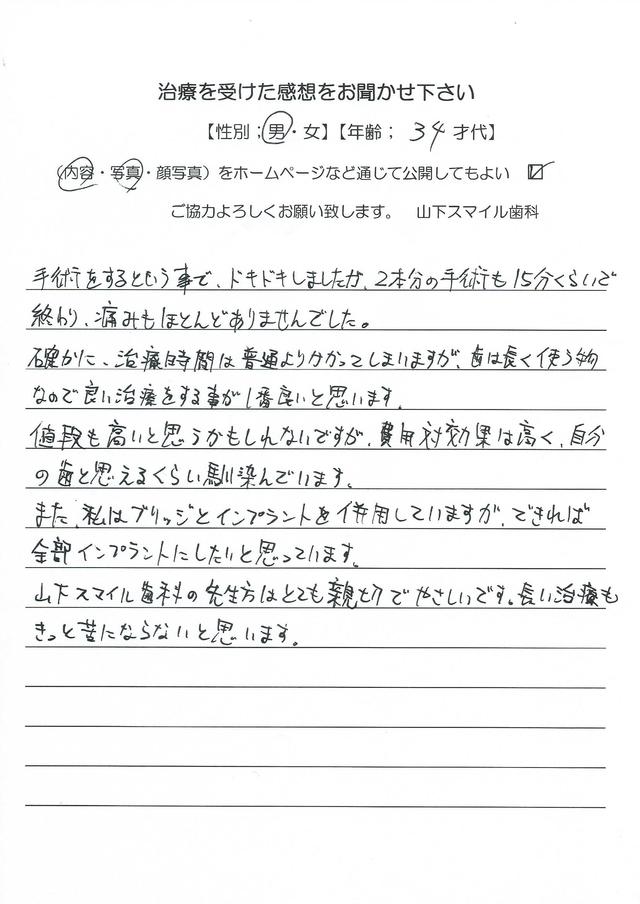 治療を受けた感想をお聞かせ下さい
【性別；男・女】【年齢； 34 才代】
(内容・写真・顔写真）をホームページなど通じて公開してもよい ☑
ご協力よろしくお願い致します。 山下スマイル歯科
手術をするという事で、ドキドキしましたが、2本分の手術も15分くらいで
終わり、痛みもほとんどありませんでした。
確かに、治療時間は普通よりかかってしまいますが、歯は長く使う物
なので良い治療をする事が1番良いと思います。
値段も高いと思うかもしれないですが、費用対効果は高く、自分
の歯と思えるくらい馴染んでいます。
また、私はブリッジとインプラントを併用していますが、できれば
全部インプラントにしたいと思っています。
山下スマイル歯科の先生方はとても親切でやさしいです。長い治療も
きっと苦にならないと思います。